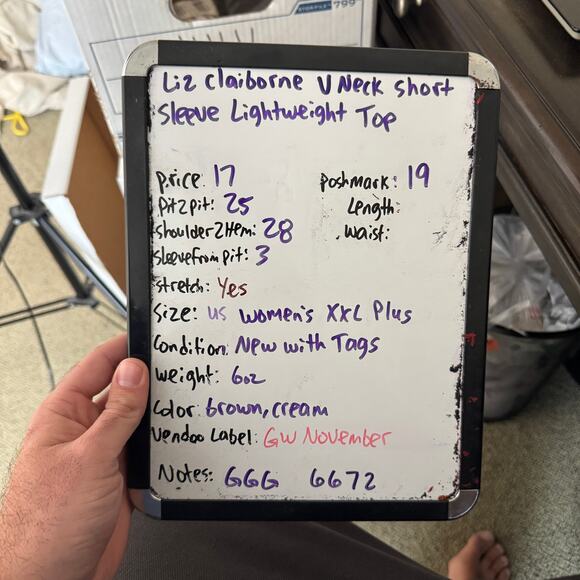 STOR/FILE™ 799
Liz Claiborne V Neck Short
Sleeve Lightweight Top
price: 17
poshmark: 19
pit2pit: 25
Length:
shoulder2Hem: 28
Waist:
sleevefrompit: 3
stretch: Yes
Size: US Women's XXL Plus
Condition: New with Tags
weight: 6oz
Color: brown, cream
Vendoo Label: GW November
Notes: GGG 6672